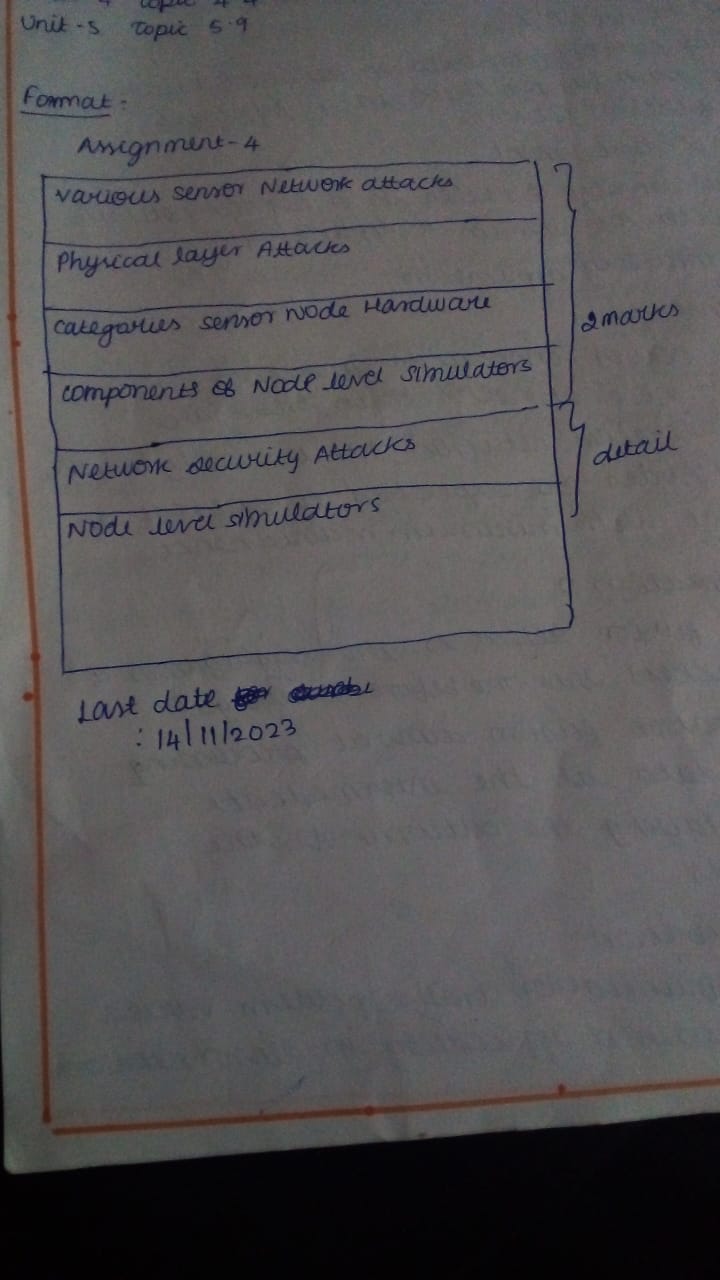 Unit-5 Topic 5.9
Format:
Assignment-4
various sensor Network attacks
Physical layer Attacks
categories sensor Node Hardware
2marks
components of Node level simulators
Network security Attacks
detail
Node level simulators
Last date
: 14/11/2023